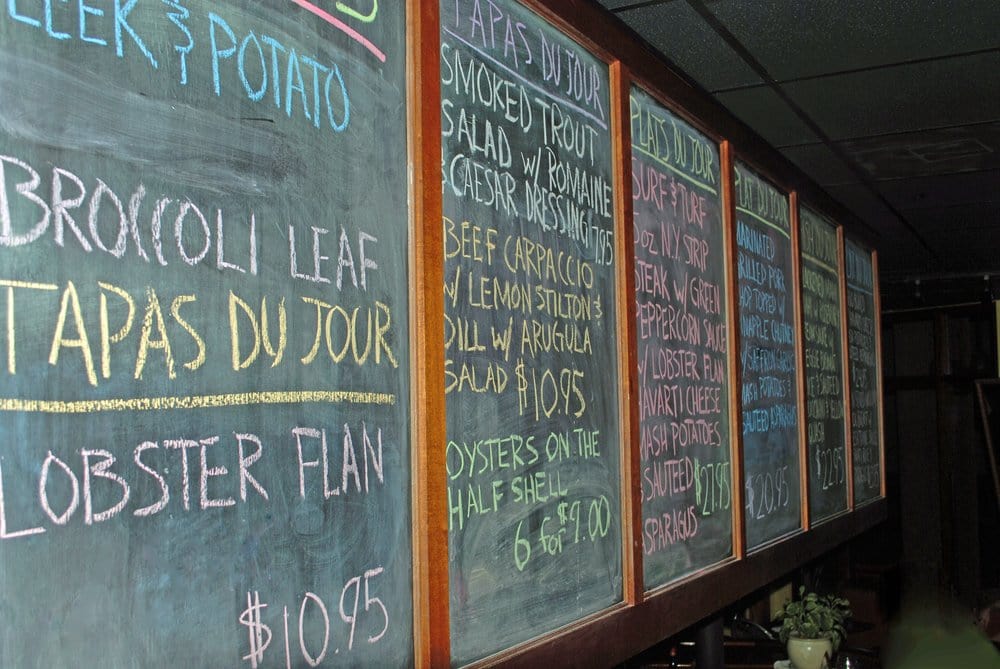 LEEK & POTATO
BROCCOLI LEAF
TAPAS DU JOUR
LOBSTER FLAN
$10.95
TAPAS DU JOUR
SMOKED TROUT
SALAD W/ ROMAINE
& CAESAR DRESSING! 7.95
BEEF CARPACCIO
W/ LEMON STILTON &
DILL W/ ARUGULA
SALAD $10.95
OYSTERS ON THE
HALF SHELL
6 for $9.00
PLATS DU JOUR
SURF & TURF
5oz N.Y. STRIP
STEAK W/ GREEN
PEPPERCORN SAUCE
W/ LOBSTER FLAN
HAVARTI CHEESE
MASH POTATOES
& SAUTEED $21.95
ASPARAGUS
PLAT DU JOUR
MARINATED
GRILLED PORK
CHOP TOPPED W/
PINEAPPLE CHUTNEY
MASH POTATOES &
SAUTEED ASPARAGUS
$20.95
$22.95